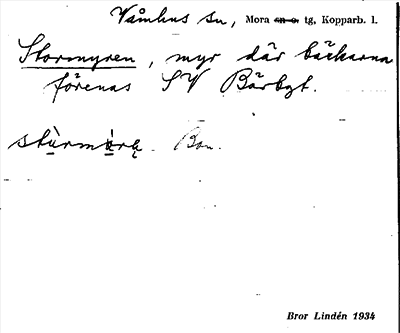 Våmhus sn, Mora sn o. tg, Kopparb. l.
Stormyren, myr där bäckarna
förenas SV Bärbgt.
Bon.
Bror Lindén 1934